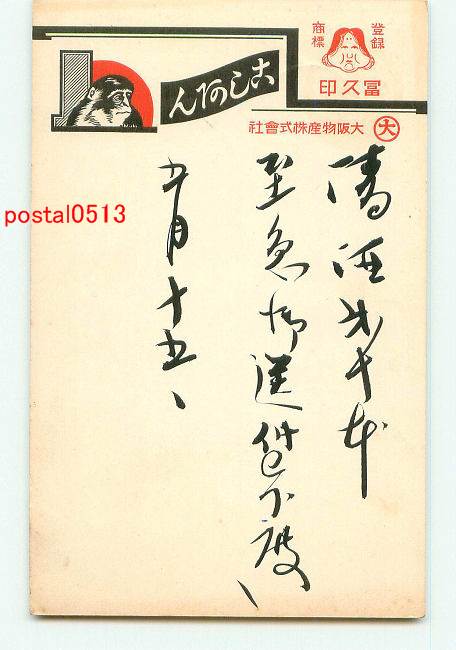 登録
商標
冨久印
大
大阪物産株式會社
こしあん
清酒弐十本
至急御送付下度、
五月十五、
postal0513